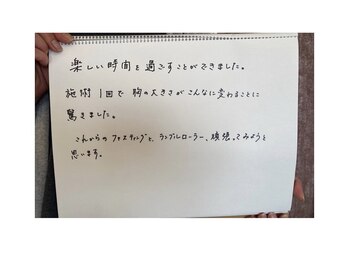 楽しい時間を過ごすことができました。
施術1回で胸の大きさがこんなに変わることに
驚きました。
これからのファスティングと、ランブルローラー、頑張ってみようと
思います。